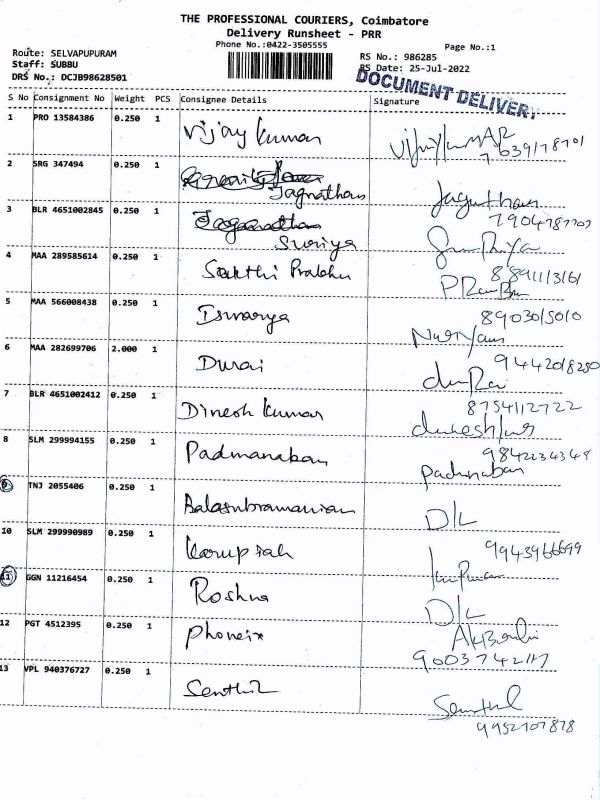 THE PROFESSIONAL COURIERS, Coimbatore
Delivery Runsheet - PRR
Phone No.:0422-3505555
Page No.:1
Route: SELVAPUPURAM
Staff: SUBBU
DRS No.: DCJB98628501
RS No.: 986285
RS Date: 25-Jul-2022
DOCUMENT DELIVERY
S No Consignment No Weight PCS Consignee Details Signature
1 PRO 13584386 0.250 1 Vijay kumar
2 SRG 347494 0.250 1 Jagnathan
3 BLR 4651002845 0.250 1 Suriya
4 MAA 289585614 0.250 1 Sakthi Prabhu
5 MAA 566008438 0.250 1 Iswarya
8903015010
6 MAA 282699706 2.000 1 Durai
9442018280
7 BLR 4651002412 0.250 1 Dinesh kumar
8754112722
8 SLM 299994155 0.250 1 Padmanaban
9842234348
Padmnaban
9 TNJ 2055406 0.250 1 Balasubramanian D/L
10 SLM 299990989 0.250 1 Karupiah
9943966699
11 GGN 11216454 0.250 1 Roshna D/L
12 PGT 4512395 0.250 1 Phoneix
13 VPL 940376727 0.250 1 Senthil
9952107878